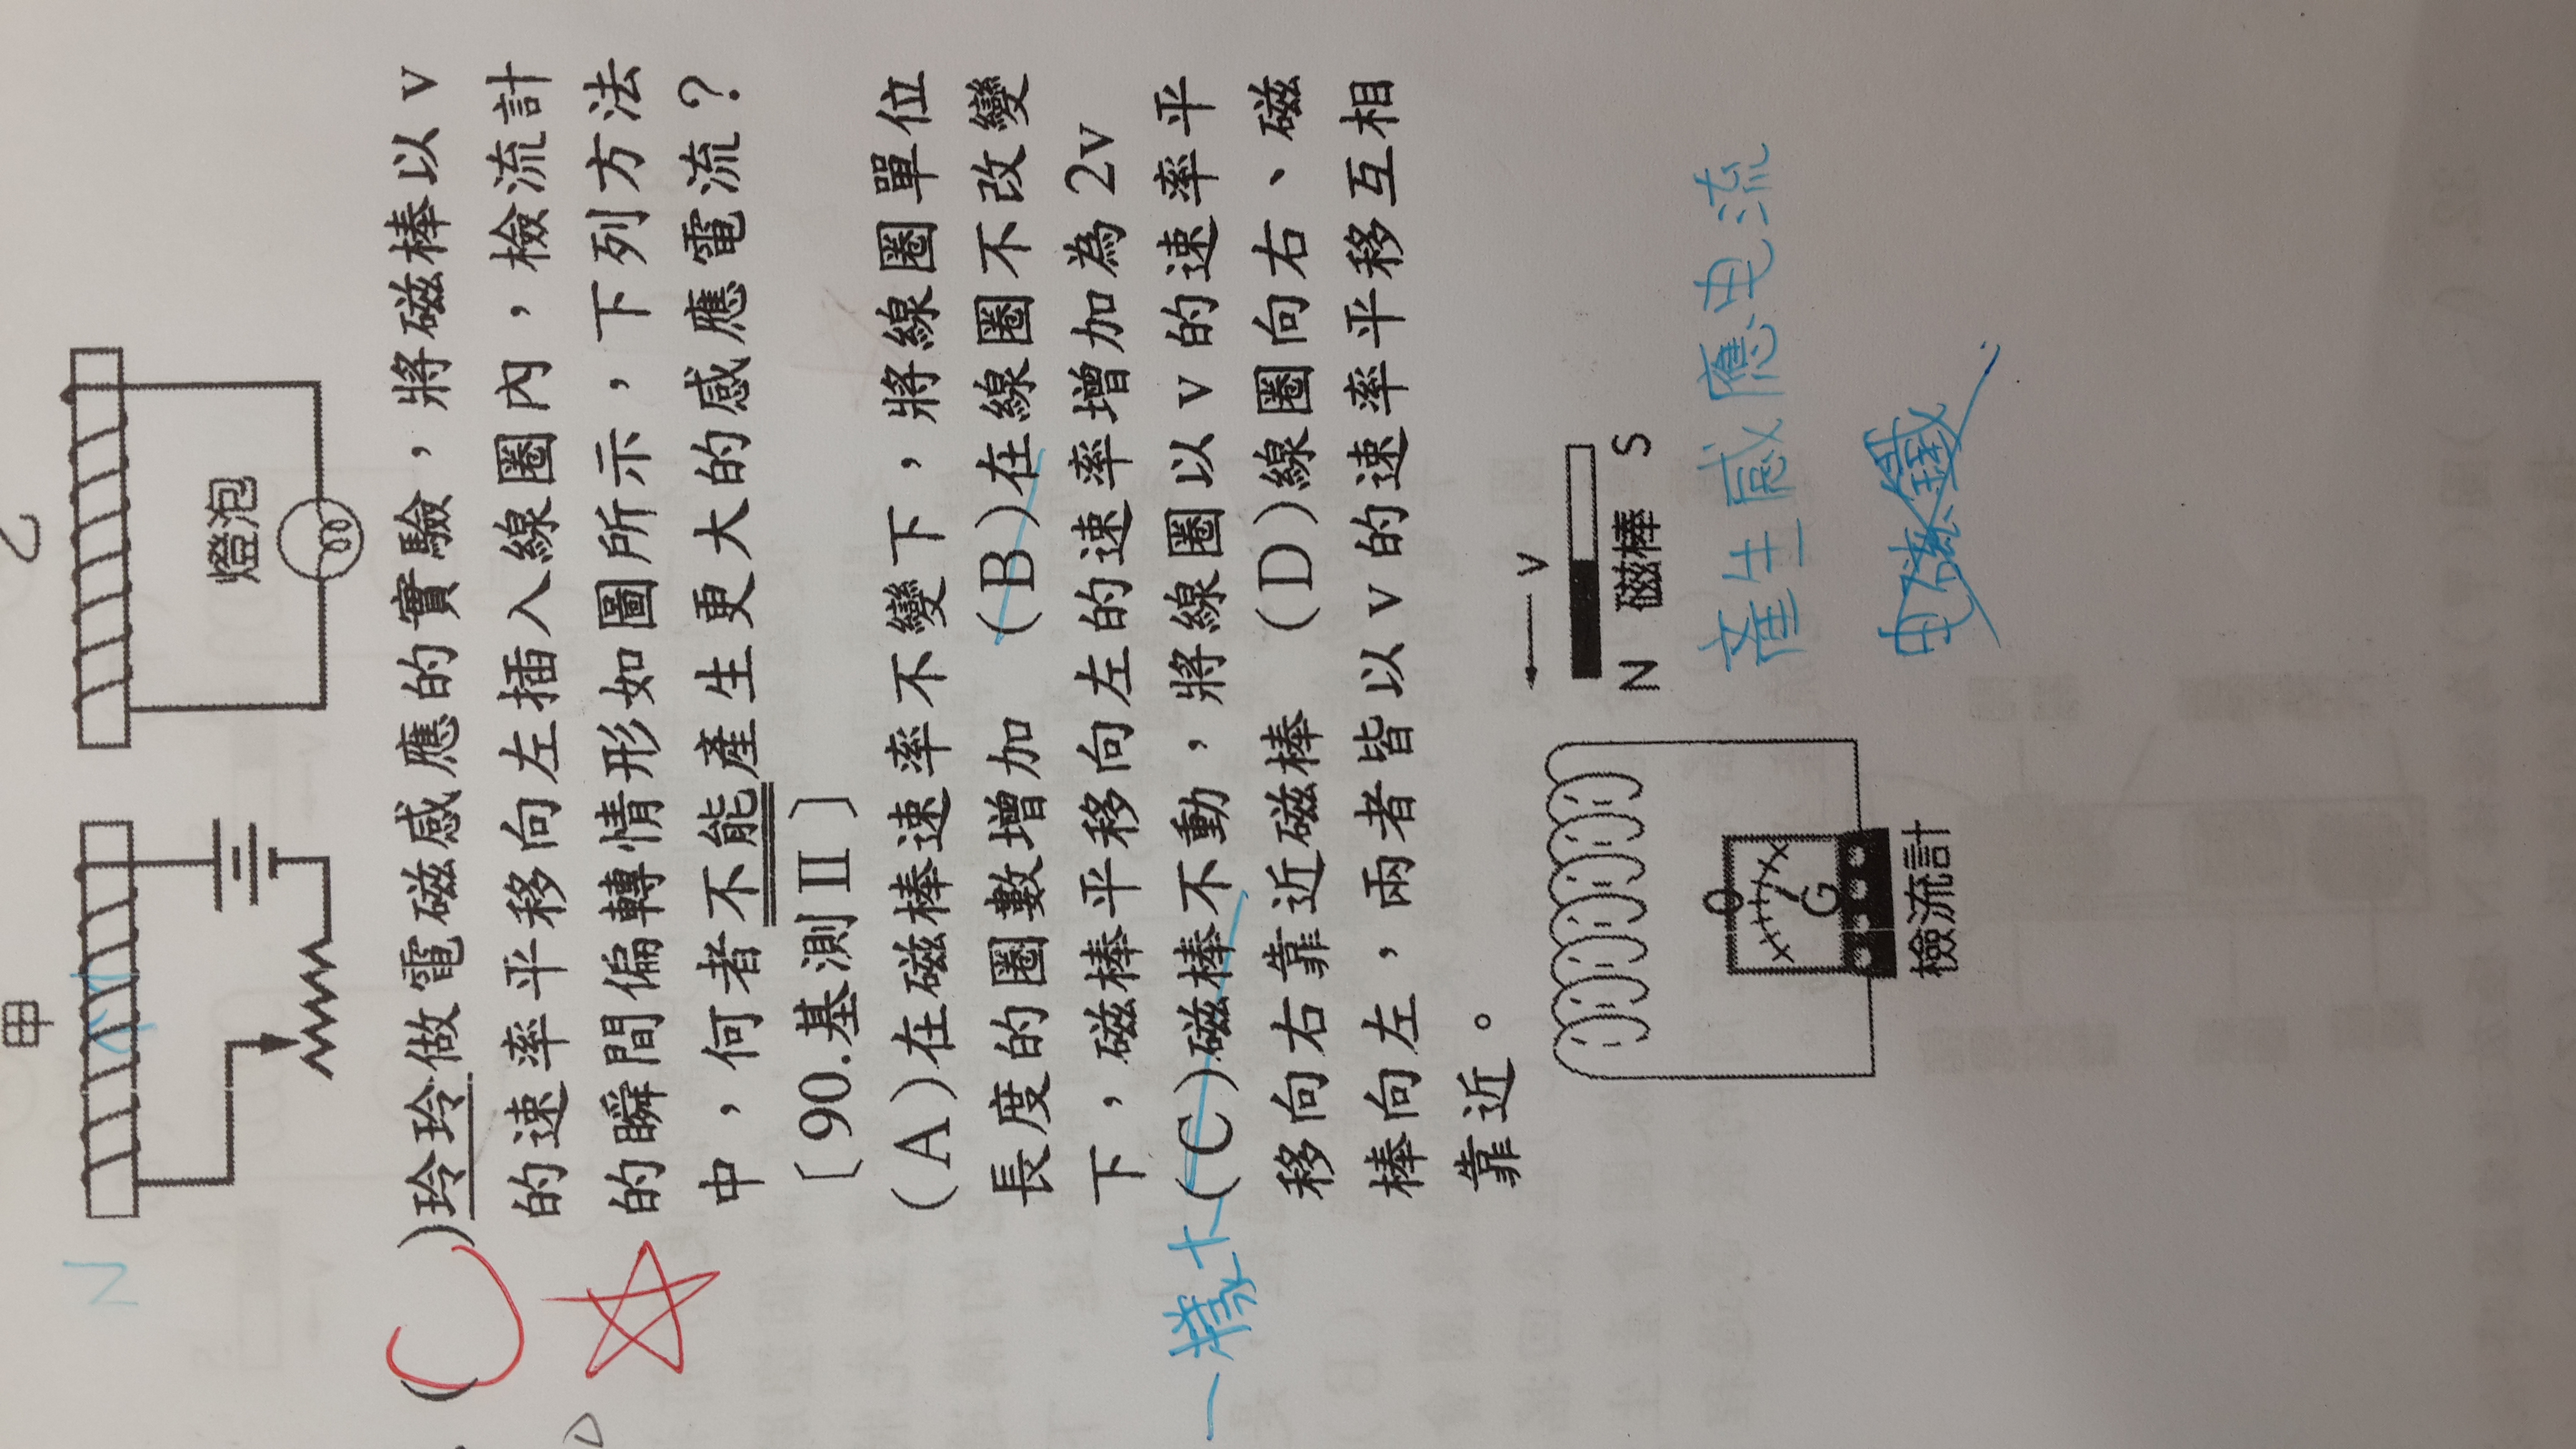 甲
乙
N
燈泡
(C)玲玲做電磁感應的實驗，將磁棒以 v
的速率平移向左插入線圈內，檢流計
的瞬間偏轉情形如圖所示，下列方法
中，何者不能產生更大的感應電流？
〔90.基測Ⅱ〕
(A)在磁棒速率不變下，將線圈單位
長度的圈數增加 (B)在線圈不改變
下，磁棒平移向左的速率增加為 2v
一樣大 (C)磁棒不動，將線圈以 v 的速率平
移向右靠近磁棒 (D)線圈向右、磁
棒向左，兩者皆以 v 的速率平移互相
靠近。
v
N 磁棒 S
0
G
檢流計
產生感應电流